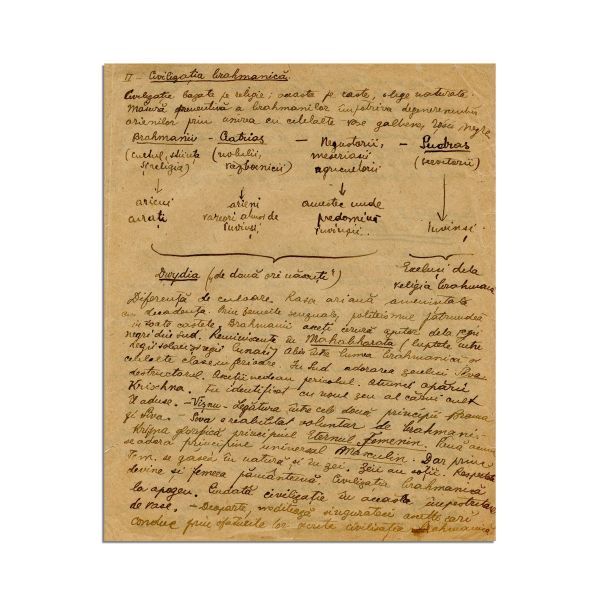 II - Civilizația brahmanică.
Civilizație bazată pe religie; aceasta pe caste, alege naturale.
Măsură preventivă a brahmanilor împotriva degenerenței
arienilor prin unirea cu celelalte rase galbene, roșii negre
Brahmanii - Ctatrias - Negustorii, - Sudras
(cultul, științe (nobilii, meseriașii (servitorii)
și religia) războinicii) agricultorii
aricii arieni amestec unde Învinși
curați predomină
învinși învinșii
Dwydia („de două ori născuți") Excluși dela
religia brahmană
Diferență de culoare. Rasa ariană amenințată
cu decadența. Prin femeile senzuale, politeismul pătrundea
în toate castele. Brahmanii asceți cerură ajutor dela regii
negri din sud. Reminiscențe în Mahabharata (luptele între
regii solari și regii lunari) Abis între lumea brahmanica și
celelalte clase inferioare. În Sud adorarea zeului Siva
destructorul. Asceții vedeau pericolul. Atunci apăru
Krishna. Fu identificat cu noul zeu al cărui cult
îl aduse. - Vișnu - Legătura între cele două principii Brama
și Siva. - Siva reabilitat voluntar de brahmani.
Krișna glorifică principiul Eternul femenin. Până acum
se adora principiul universal Masculin. Dar princ.
fem. se găsea în natură și în zei. Zeii au soții. Respectată
devine și femeea pământeană. Civilizația brahmanică
la apogeu. Ciudată civilizație în această împestrițare
de rase. - Deoparte, meditează singuratecii asceți cari
conduc prin sfaturile lor oculte civilizația brahmanică